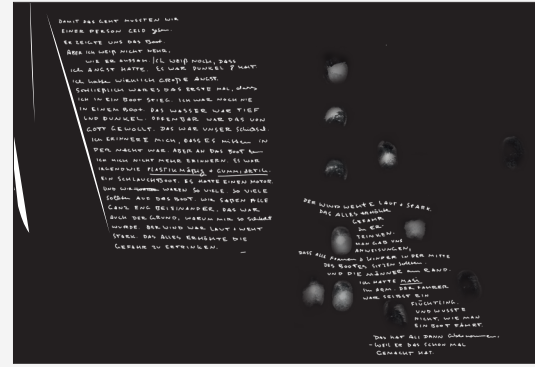 DAMIT DAS GEHT MUSSTEN WIR
EINER PERSON GELD geben.
ER ZEIGTE UNS DAS Boot.
ABER ICH WEIß NICHT MEHR,
WIE ER AUSSAH. ICH WEIß NOCH, DASS
ICH ANGST HATTE. ES WAR DUNKEL & KALT
ich hatte WIRKLICH GROßE ANGST.
SCHLIEßLICH WAR ES DAS ERSTE MAL, dass
ICH IN EIN BOOT STIEG. ICH WAR NOCH NIE
IN EINEM BOOT. DAS WASSER WAR TIEF
UND DUNKEL. OFFENBAR WAR DAS VON
GOTT GEWOLLT. DAS WAR UNSER Schicksal.
ICH ERINNERE MICH, DASS ES mitten IN
DER NACHT WAR. ABER AN DAS BOOT
ICH MICH NICHT MEHR ERINNERN. ES WAR
IRGENDWIE PLASTIKMÄßIG + GUMMIARTIG.
EIN SCHLAUCHBOOT. ES HATTE EINEN MOTOR.
UND WIR WAREN SO VIELE. SO VIELE
sollten AUF DAS BOOT. WIR SAßEN ALLE
GANZ ENG BEIEINANDER. DAS WAR
AUCH DER GRUND, WARUM MIR SO schlecht
WURDE. DER WIND WAR LAUT + WEHT
STARK. DAS ALLES ERHÖHTE DIE
GEFAHR ZU ERTRINKEN. –
DER WIND WEHTE LAUT + STARK.
DAS ALLES ERHÖHTE
GEFAHR
ZU ER-
TRINKEN.
MAN GAB UNS
ANWEISUNGEN,
DASS ALLE Frauen & KINDER IN DER MITTE
DES BOOTES SITZEN sollten
UND DIE MÄNNER am RAND.
ICH HATTE
IM ARM. DER FAHRER
WAR SELBST EIN
FLÜCHTLING.
UND WUSSTE
NICHT, WIE MAN
EIN BOOT FÄHRT.
DAS HAT ALI DANN übernommen,
– WEIL ER DAS SCHON MAL
GEMACHT HAT.